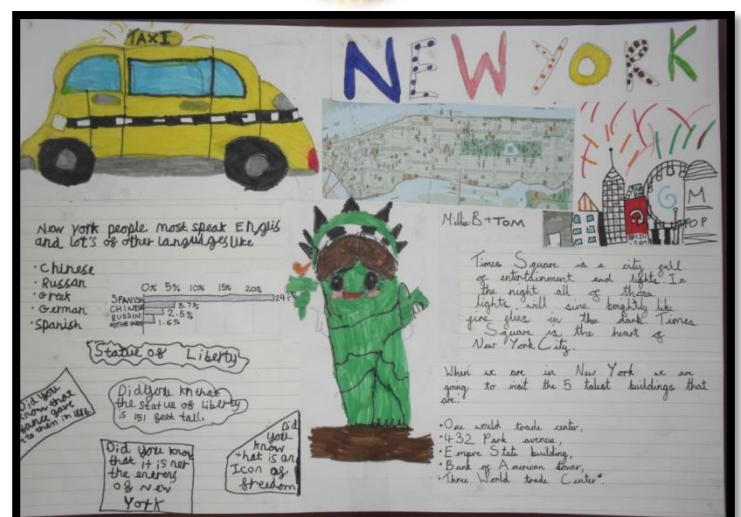 TAXI
NEW YORK
Millie B + TOM
G M
POP
New York people most speak Englis
and lot's of other languages like
• Chinese
• Russan
• German
• Spanish
0% 5% 10% 15% 20%
SPANISH
CHINESE 5.7%
RUSSIN 2.5%
1.6%
Statue of Liberty
Did you
know that
gave
to them in
Did you kn that
the statue of liberty
is 151 feet tall.
Did you know
that it is ner
the entery
of New
York
Did
you
know
that is an
Icon of
freedom
Times Square is a city full
of entertainment and lights. In
the night all of those
lights, will sine brightly like
fire flies in the dark. Times
Square is the heart of
New York City.
When we are in New York we are
going to visit the 5 talest buildings that
are:
• One world trade center,
• 432 Park avenue,
• Empire State building,
• Bank of American tower,
• Three World trade Center.